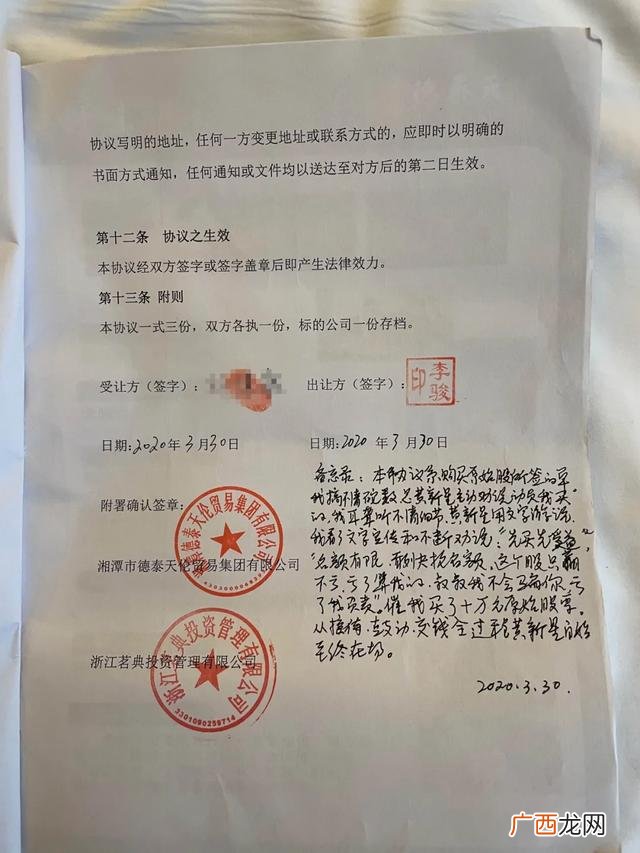 协议写明的地址，任何一方变更地址或联系方式的，应即时以明确的
书面方式通知，任何通知或文件均以送达至对方后的第二日生效。
第十二条 协议之生效
本协议经双方签字或签字盖章后即产生法律效力。
第十三条 附则
本协议一式三份，双方各执一份，标的公司一份存档。
受让方（签字）：
出让方（签字）：
李骏
印
日期：2020年3月30日
日期：2020年3月30日
备忘录：本协议系购买原始股所签的单
我搞不清 黄新星主动劝说动员我买
的，我耳聋听不清细节，黄新星用文字 说
我看了文字宣传和不断劝说："先买先
名额有限，要尽快抢名额，这个股只
不亏，亏了算我的，叔叔我不会 你，亏
了我 "催我买了十万元原始股票。
从接待、鼓动、交钱全过程黄新星自始
至终在场。
2020.3.30.
附署确认签章：
湘潭市德泰天伦贸易集团有限公司
浙江茗典投资管理有限公司
3301090259714
广西龙网